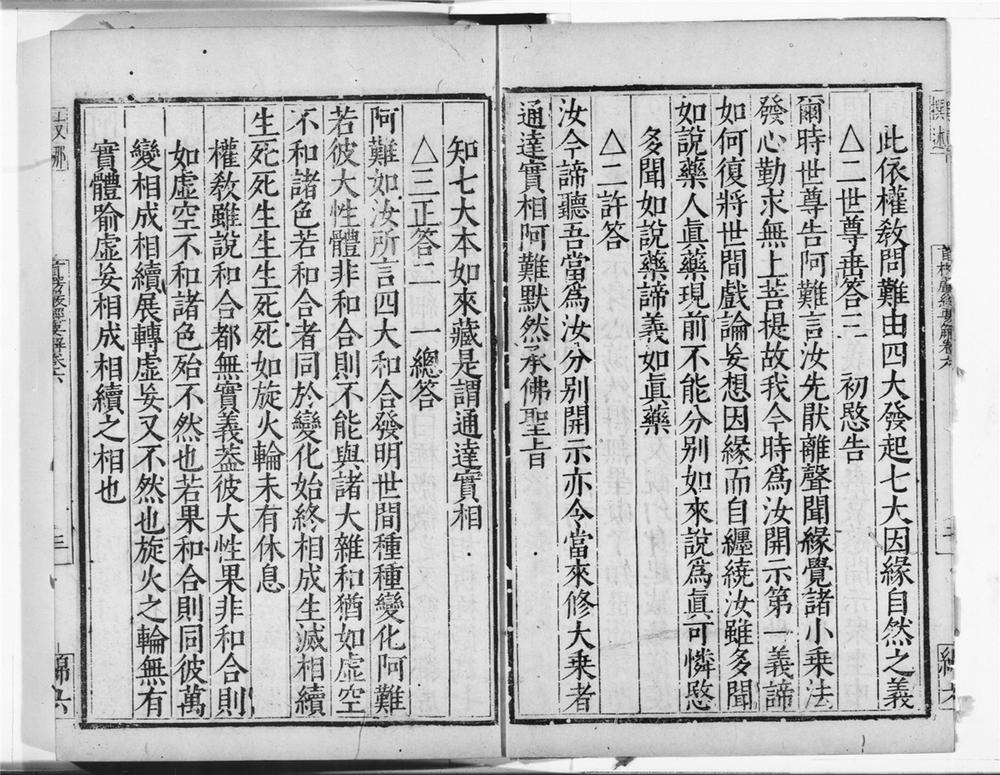 此依權敎問難由四大發起七大因緣自然之義
△二世尊垂答二　初愍告
爾時世尊告阿難言汝先厭離聲聞緣覺諸小乘法
發心勤求無上菩提故我今時爲汝開示第一義諦
如何復將世間戲論妄想因緣而自纏繞汝雖多聞
如說藥人眞藥現前不能分别如來說爲眞可憐愍
多聞如說藥諦義如眞藥
△二許答
汝今諦聽吾當爲汝分别開示亦令當來修大乘者
通達實相阿難默然承佛聖旨
知七大本如來藏是謂通達實相
△三正答二　一總答
阿難如汝所言四大和合發明世間種種變化阿難
若彼大性體非和合則不能與諸大雜和猶如虛空
不和諸色若和合者同於變化始終相成生滅相續
生死死生生生死死如旋火輪未有休息
權敎雖說和合都無實義葢彼大性果非和合則
如虛空不和諸色殆不然也若果和合則同彼萬
變相成相續展轉虛妄又不然也旋火之輪無有
實體喻虛妄相成相續之相也
首楞嚴經要解卷六
三